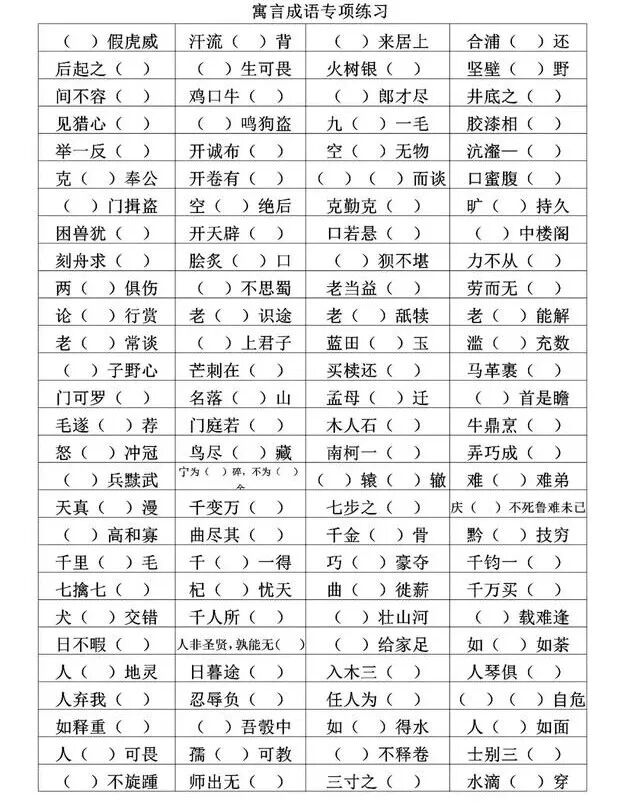 寓言成语专项练习
（ ）假虎威 汗流（ ）背 （ ）来居上 合浦（ ）还
后起之（ ） （ ）生可畏 火树银（ ） 坚壁（ ）野
间不容（ ） 鸡口牛（ ） （ ）郎才尽 井底之（ ）
见猎心（ ） （ ）鸣狗盗 九（ ）一毛 胶漆相（ ）
举一反（ ） 开诚布（ ） 空（ ）无物 沆瀣一（ ）
克（ ）奉公 开卷有（ ） （ ）（ ）而谈 口蜜腹（ ）
（ ）门揖盗 空（ ）绝后 克勤克（ ） 旷（ ）持久
困兽犹（ ） 开天辟（ ） 口若悬（ ） （ ）中楼阁
刻舟求（ ） 脍炙（ ）口 （ ）狈不堪 力不从（ ）
两（ ）俱伤 （ ）不思蜀 老当益（ ） 劳而无（ ）
论（ ）行赏 老（ ）识途 老（ ）舐犊 老（ ）能解
老（ ）常谈 （ ）上君子 蓝田（ ）玉 滥（ ）充数
（ ）子野心 芒刺在（ ） 买椟还（ ） 马革裹（ ）
门可罗（ ） 名落（ ）山 孟母（ ）迁 （ ）首是瞻
毛遂（ ）荐 门庭若（ ） 木人石（ ） 牛鼎烹（ ）
怒（ ）冲冠 鸟尽（ ）藏 南柯一（ ） 弄巧成（ ）
（ ）兵黩武 宁为（ ）碎，不为（ ）全 （ ）辕（ ）辙 难（ ）难弟
天真（ ）漫 千变万（ ） 七步之（ ） 庆（ ）不死鲁难未已
（ ）高和寡 曲尽其（ ） 千金（ ）骨 黔（ ）技穷
千里（ ）毛 千（ ）一得 巧（ ）豪夺 千钧一（ ）
七擒七（ ） 杞（ ）忧天 曲（ ）徙薪 千万买（ ）
犬（ ）交错 千人所（ ） （ ）壮山河 （ ）载难逢
日不暇（ ） 人非圣贤，孰能无（ ） （ ）给家足 如（ ）如荼
人（ ）地灵 日暮途（ ） 入木三（ ） 人琴俱（ ）
人弃我（ ） 忍辱负（ ） 任人为（ ） （ ）（ ）自危
如释重（ ） （ ）吾彀中 如（ ）得水 人（ ）如面
人（ ）可畏 孺（ ）可教 （ ）不释卷 士别三（ ）
（ ）不旋踵 师出无（ ） 三寸之（ ） 水滴（ ）穿